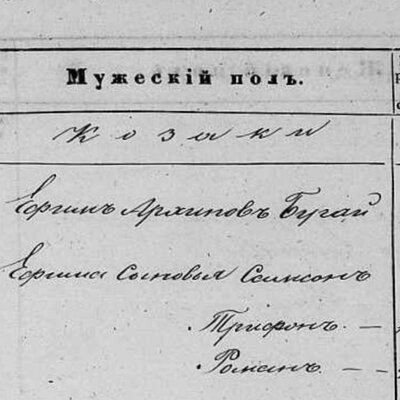 Мужескій полъ.
Козаки
Ефимъ Архиповъ Бугай
Ефима сыновья Самсонъ
Трифонъ. —
Романъ. —